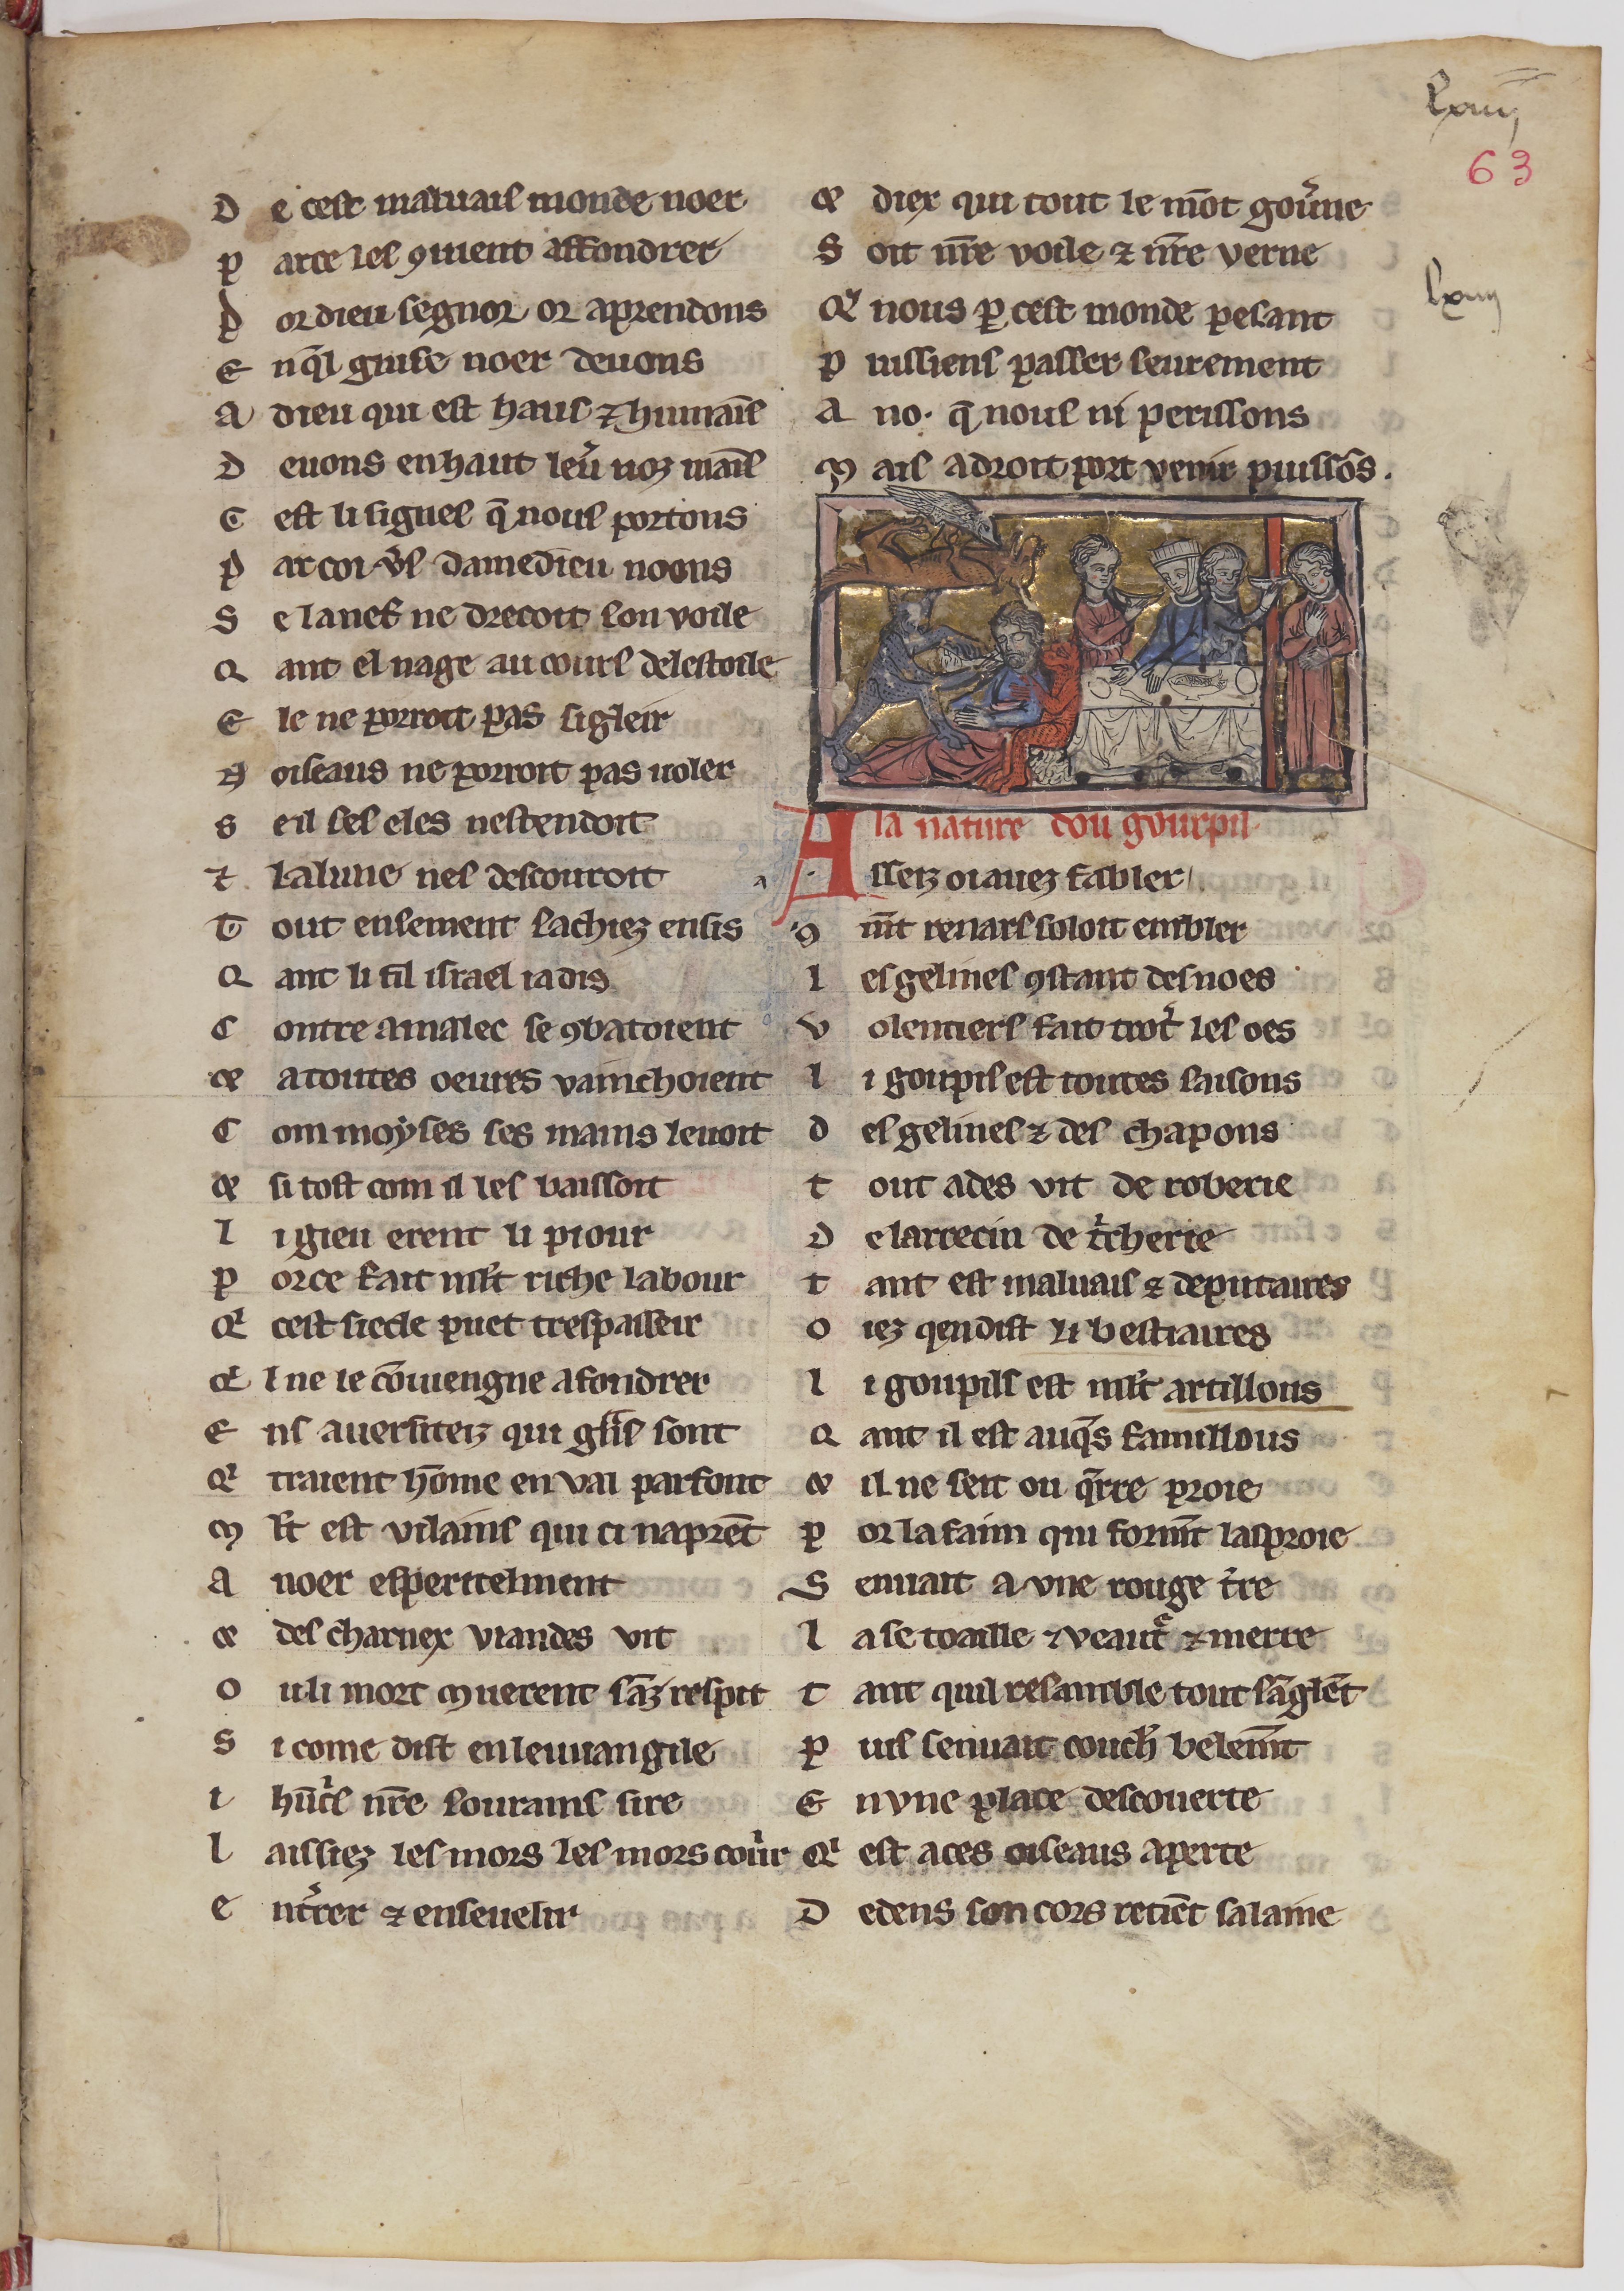 lxiiij
63
lxiiij
D e cest maluais monde noer
P arce les ꝯuient affondrer
P or dieu segnor or aprendons
E nq̄l guise noer deuons
A dieu qui est haus ⁊ humaīs
D euons enhaut leu̾ noz maīs
C est li signes q̄ nous portons
P ar coi v̾s damedieu noons
S e la nef ne drecoit son voile
Q ant el nage au cours delestoile
E le ne porroit pas sigleir
Oiseaus ne porroit pas uoler
S e il ses eles nestendoit
⁊ la lune nes descouroit
T out ensement sachiez ensis
Q ant li fil israel iadis
C ontre amalec se ꝯbatoient
Et a toutes oeures vainchoient
C om moyses ses mains leuoit
Et si tost com il les baissoit
L i gieu erent li piour
P or ce fait ml̄t riche labour
Q̾ cest siecle puet trespasseir
Q̾ l ne le cōuengne afondrer
E ns auersiteiz qui gn̄s sont
Q̾ traient hōme en val parfont
M l̄t est vilains qui ci naprēt
A noer esperitelment
Et des charnex viandes vit
O u li mort muerent sāz respit
S i come dist en leuuangile
I hūc̾s nr̄e sourains sire
L aissiez les mors les mors cou̾ir
E nt̾rer ⁊ enseuelir
Et diex qui tout le mōt gou̾ne
S oit nr̄e voile ⁊ nr̄e verne
Q̾ nous ꝑ cest monde pesant
P uissiens passer seurement
A no. q̄ nous ni perissons
M ais a droit port venir puissōs.
la nature dou gourpil
A sseiz oi auez fabler
ꝯ m̄t renars soloit embler
L es gelines ꝯstant des noes
V olentiers fait trot̾ les oes
L i goupis est toutes saisons
D es gelines ⁊ des chapons
T out ades vit de roberie
D e larrecin de t̾cherie
T ant est maluais ⁊ deputaires
O iez qen dist li bestiaires
L i goupils est ml̄t artillous
Q ant il est auq̄s famillous
Et il ne seit ou q̄rre proie
P or la faim qui form̄t lasproie
S en uait a vne rouge t̾re
L a se toaille ⁊ veaut̾ ⁊ merre
T ant quil resamble tout sāglēt
P uis sen uait couch̾ belem̄t
E n vne place descouerte
Q̾ est a ces oiseaus aperte
D edens son cors retiēt salaine